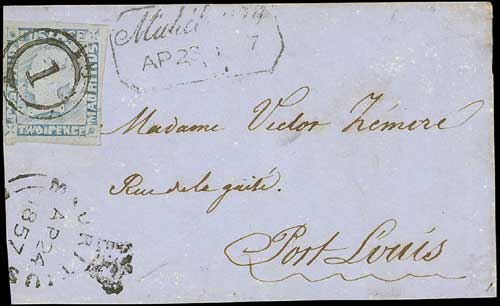 POST PAID
MAURITIUS
TWO PENCE
1
AP 23
7
Madame Victor Zémire
Rue de la gaité.
Port Louis
MAURITIUS
AP 24
1857